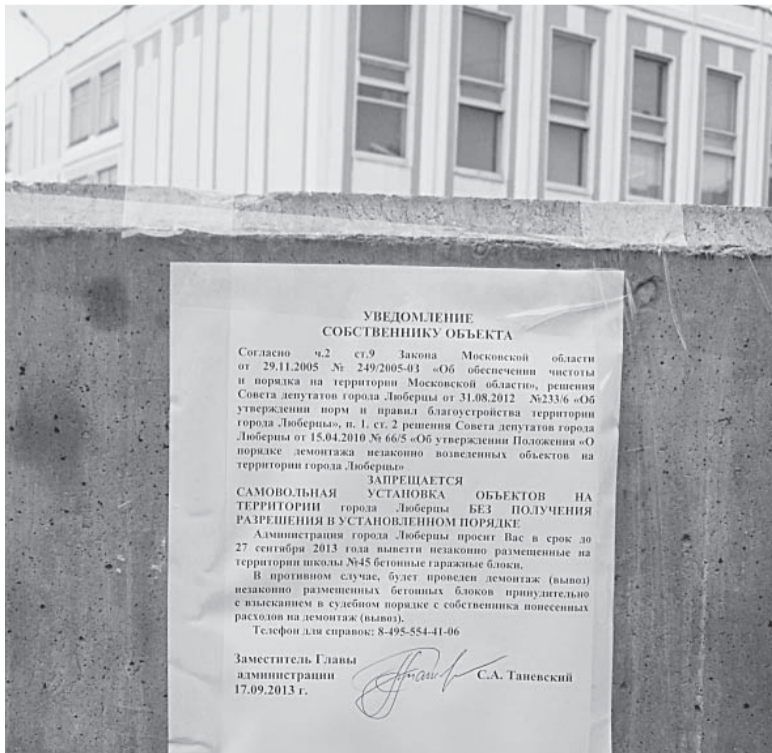 УВЕДОМЛЕНИЕ
СОБСТВЕННИКУ ОБЪЕКТА
Согласно ч.2 ст.9 Закона Московской области
от 29.11.2005 № 249/2005-ОЗ «Об обеспечении чистоты
и порядка на территории Московской области», решения
Совета депутатов города Люберцы от 31.08.2012 №233/6 «Об
утверждении норм и правил благоустройства территории
города Люберцы», п. 1. ст. 2 решения Совета депутатов города
Люберцы от 15.04.2010 № 66/5 «Об утверждении Положения «О
порядке демонтажа незаконно возведенных объектов на
территории города Люберцы»
ЗАПРЕЩАЕТСЯ
САМОВОЛЬНАЯ УСТАНОВКА ОБЪЕКТОВ НА
ТЕРРИТОРИИ города Люберцы БЕЗ ПОЛУЧЕНИЯ
РАЗРЕШЕНИЯ В УСТАНОВЛЕННОМ ПОРЯДКЕ
Администрация города Люберцы просит Вас в срок до
27 сентября 2013 года вывезти незаконно размещенные на
территории школы №45 бетонные гаражные блоки.
В противном случае, будет проведен демонтаж (вывоз)
незаконно размещенных бетонных блоков принудительно
с взысканием в судебном порядке с собственника понесенных
расходов на демонтаж (вывоз).
Телефон для справок: 8-495-554-41-06
Заместитель Главы
администрации С.А. Таневский
17.09.2013 г.